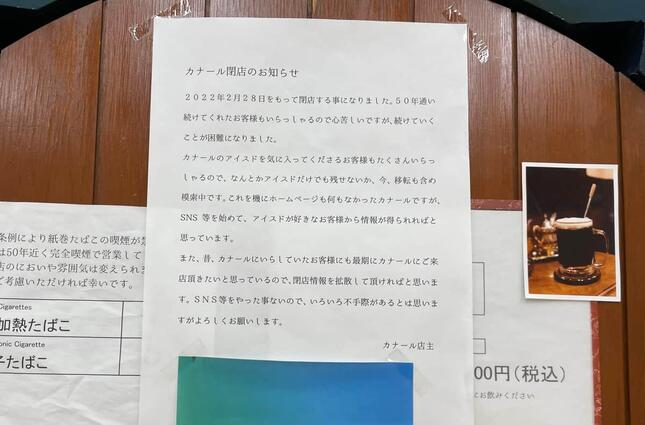 カナール閉店のお知らせ
２０２２年２月２８日をもって閉店する事になりました。５０年通い
続けてくれたお客様もいらっしゃるので心苦しいですが、続けていく
ことが困難になりました。
カナールのアイスドを気に入ってくださるお客様もたくさんいらっ
しゃるので、なんとかアイスドだけでも残せないか、今、移転も含め
模索中です。これを機にホームページも何もなかったカナールですが、
SNS 等を始めて、アイスドが好きなお客様から情報が得られればと
思っています。
また、昔、カナールにいらしていたお客様にも最期にカナールにご来
店頂きたいと思っているので、閉店情報を拡散して頂ければと思いま
す。ＳＮＳ等をやった事ないので、いろいろ不手際があるとは思いま
すがよろしくお願いします。
カナール店主
条例により紙巻たばこの喫煙が禁
は50年近く完全喫煙で営業して
店のにおいや雰囲気は変えられま
ご考慮いただければ幸いです。
Cigarettes
加熱たばこ
onic Cigarette
子たばこ
00円（税込）
にお飲みください